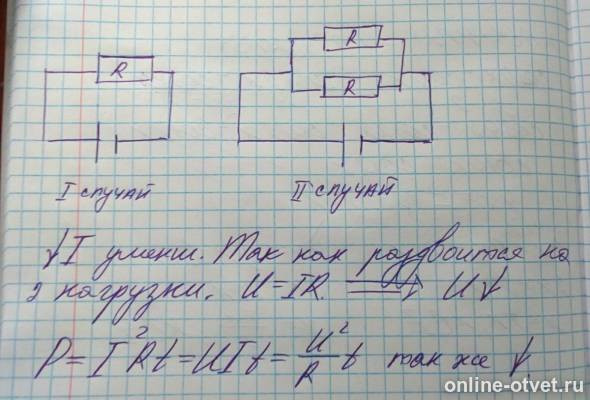 R
R
R
I случай
II случай
↓ I уменш. Так как раздвоится на
2 нагрузки. U = IR. ⟹ U↓
P = I²Rt = UIt = U²/R t так же ↓
online-otvet.ru